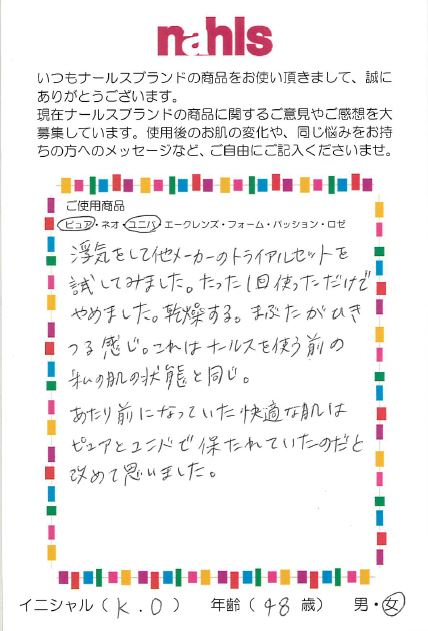 nahls
いつもナールスブランドの商品をお使い頂きまして、誠に
ありがとうございます。
現在ナールスブランドの商品に関するご意見やご感想を大
募集しています。使用後のお肌の変化や、同じ悩みをお持
ちの方へのメッセージなど、ご自由にご記入くださいませ。
ご使用商品
ピュア・ネオ・ユニバ・エークレンズ・フォーム・パッション・ロゼ
浮気をして他メーカーのトライアルセットを
試してみました。たった1回使っただけで
やめました。乾燥する。まぶたがひき
つる感じ。これはナールスを使う前の
私の肌の状態と同じ。
あたり前になっていた快適な肌は
ピュアとユニバで保たれていたのだと
改めて思いました。
イニシャル（ K.O ） 年齢（ 48 歳） 男・女